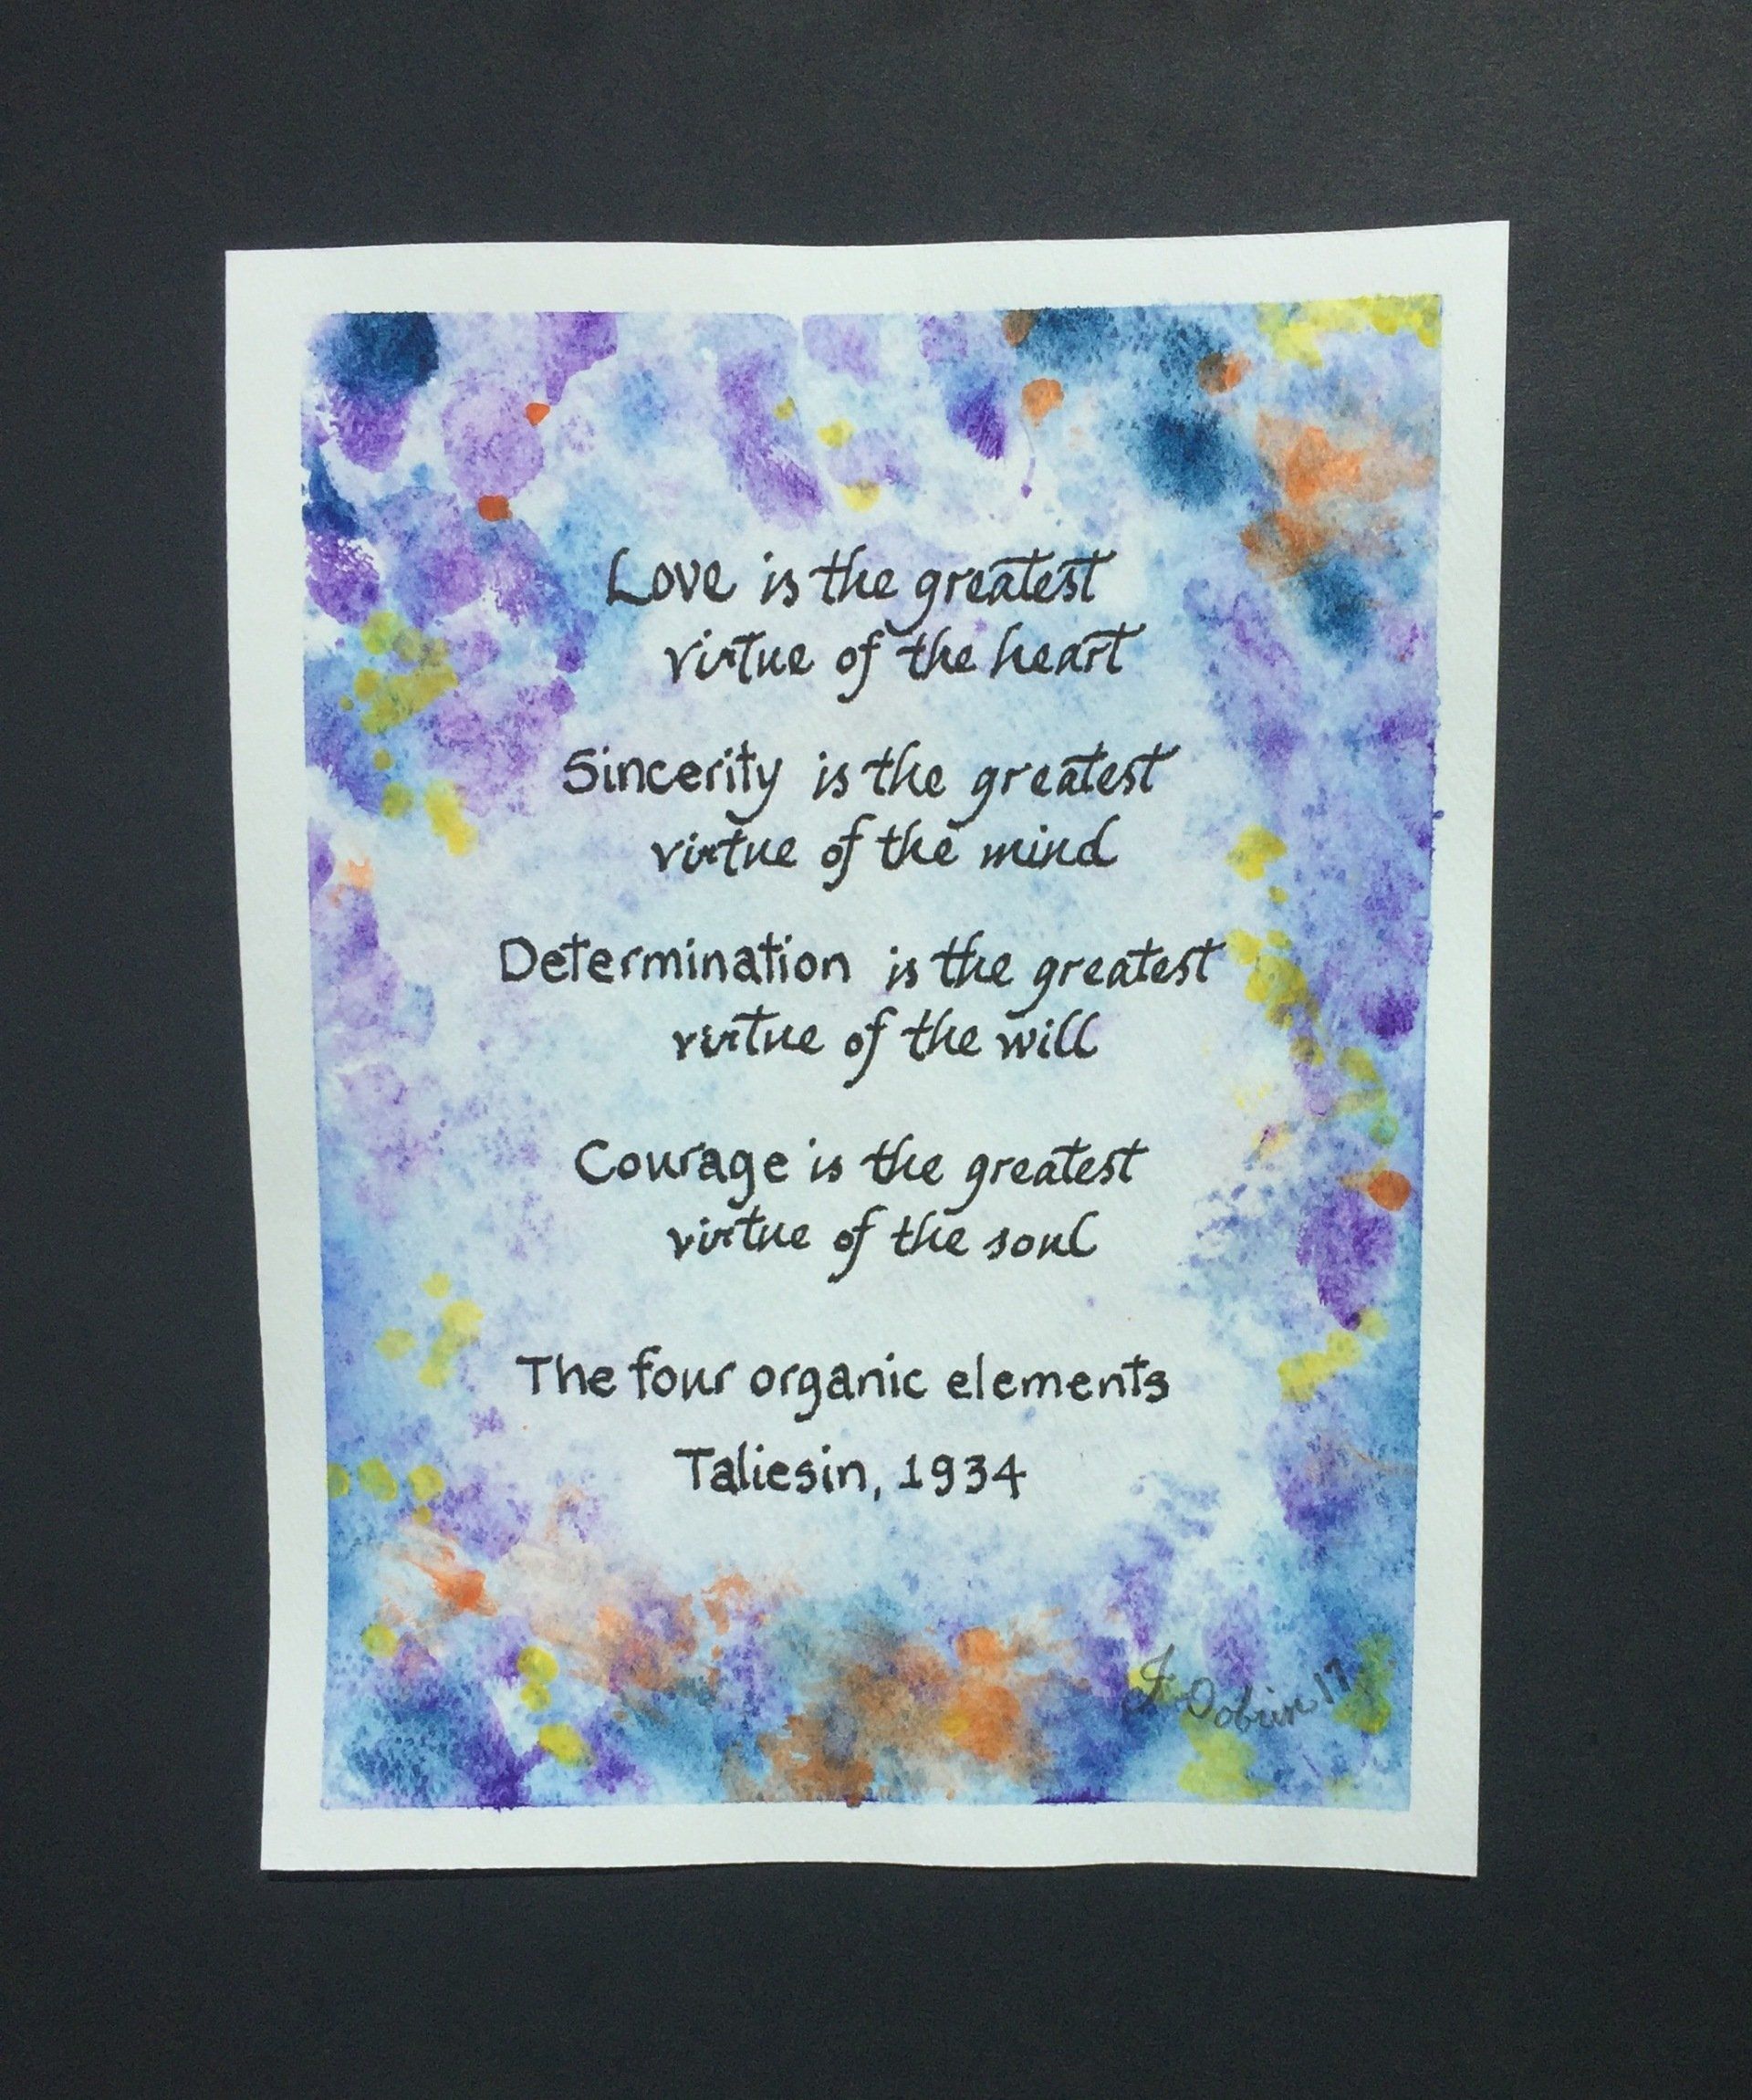 Love is the greatest
virtue of the heart
Sincerity is the greatest
virtue of the mind
Determination is the greatest
virtue of the will
Courage is the greatest
virtue of the soul
The four organic elements
Taliesin, 1934
F Dobrin 17